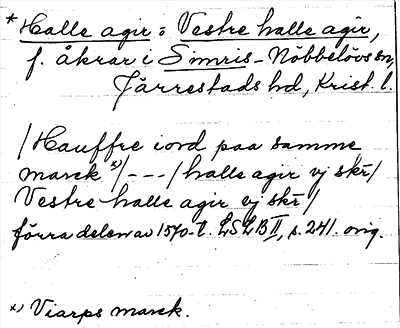 * Halle agir: Vestre halle agir,
f. åkrar i Simris-Nöbbelövs sn,
Järrestads hd, Krist. l.
/Hauffre iord paa samme
marck x)/---/halle agir vj skr/
Vestre halle agir vj skr/
förra delen av 1570-t. LSLB II, s. 241. orig.
x) Viarps marck.